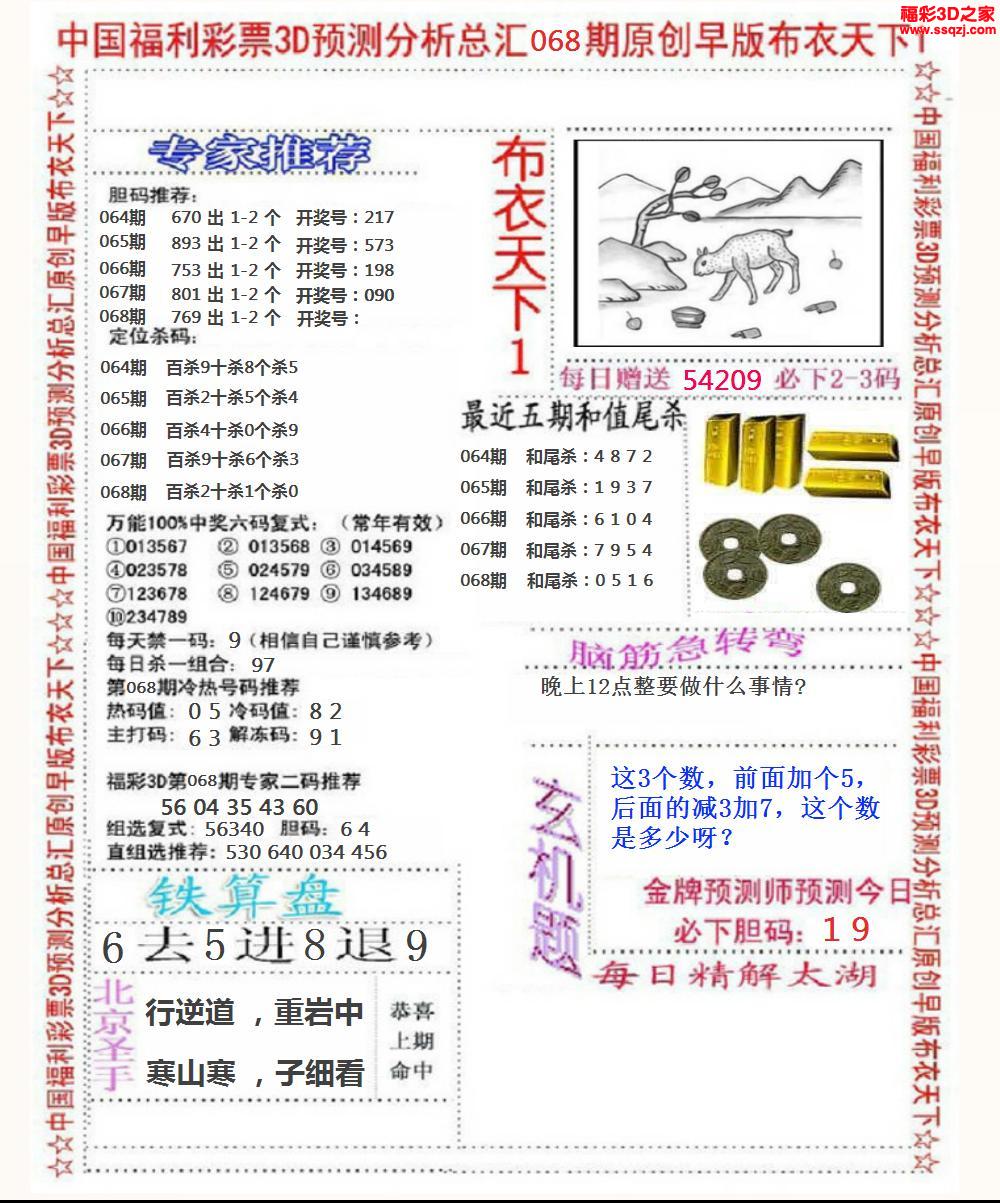 福彩3D之家
www.ssqzj.com
中国福利彩票3D预测分析总汇068期原创早版布衣天下1
☆☆中国福利彩票3D预测分析总汇原创早版布衣天下☆☆☆中国福利彩票3D预测分析总汇原创早版布衣天下☆☆
专家推荐
胆码推荐:
064期 670 出 1-2 个 开奖号：217
065期 893 出 1-2 个 开奖号：573
066期 753 出 1-2 个 开奖号：198
067期 801 出 1-2 个 开奖号：090
068期 769 出 1-2 个 开奖号：
定位杀码:
064期 百杀9十杀8个杀5
065期 百杀2十杀5个杀4
066期 百杀4十杀0个杀9
067期 百杀9十杀6个杀3
068期 百杀2十杀1个杀0
万能100%中奖六码复式：（常年有效）
①013567 ② 013568 ③ 014569
④023578 ⑤ 024579 ⑥ 034589
⑦123678 ⑧ 124679 ⑨ 134689
⑩234789
每天禁一码：9（相信自己谨慎参考）
每日杀一组合：97
第068期冷热号码推荐
热码值：0 5 冷码值：8 2
主打码：6 3 解冻码：9 1
福彩3D第068期专家二码推荐
56 04 35 43 60
组选复式：56340 胆码：6 4
直组选推荐：530 640 034 456
铁算盘
6去5进8退9
北京圣手
行逆道，重岩中
寒山寒，子细看
恭喜
上期
命中
布衣天下1
每日赠送 54209 必下2-3码
最近五期和值尾杀
064期 和尾杀：4 8 7 2
065期 和尾杀：1 9 3 7
066期 和尾杀：6 1 0 4
067期 和尾杀：7 9 5 4
068期 和尾杀：0 5 1 6
脑筋急转弯
晚上12点整要做什么事情?
玄机题
这3个数，前面加个5，
后面的减3加7，这个数
是多少呀？
金牌预测师预测今日
必下胆码：1 9
每日精解太湖
☆☆中国福利彩票3D预测分析总汇原创早版布衣天下☆☆☆中国福利彩票3D预测分析总汇原创早版布衣天下☆☆